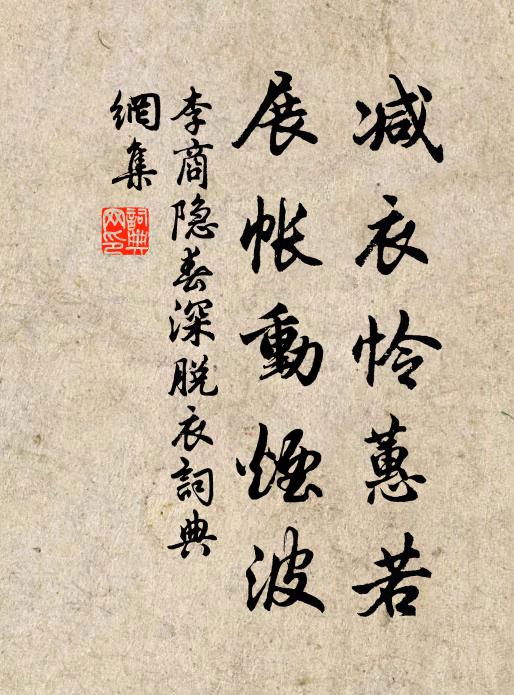 减衣怜蕙若
展帐動煙波
李商隐春深脱衣詞典
網集
詞典
网印